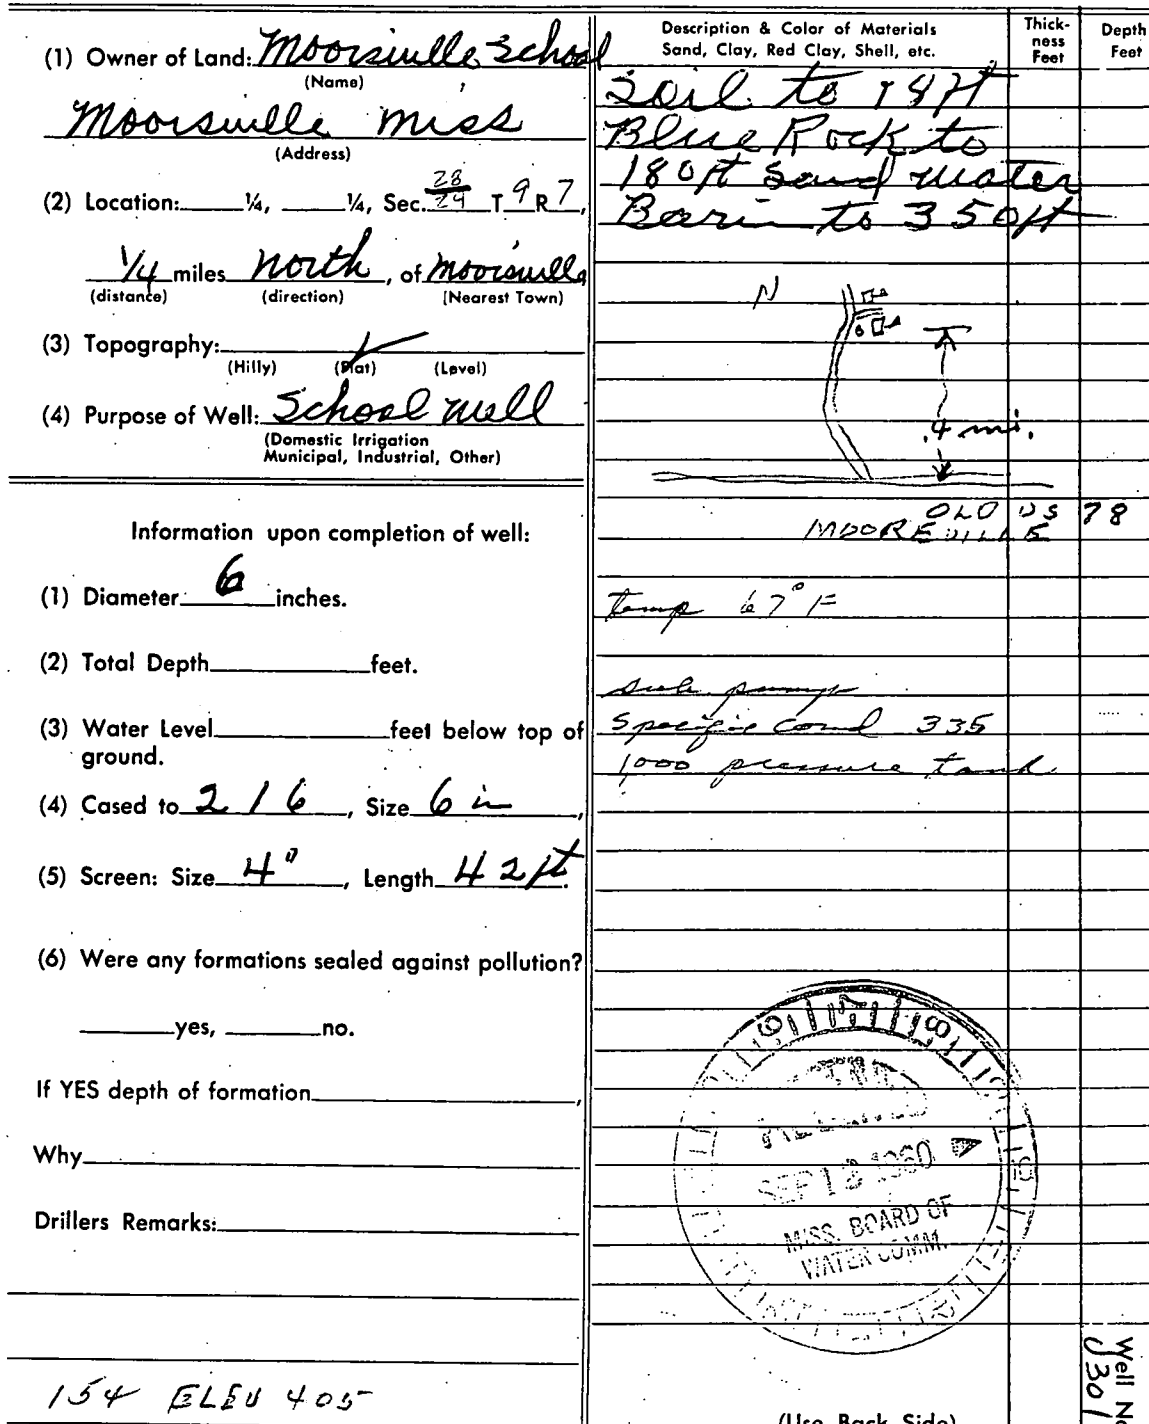 (1) Owner of Land: Moorsville School
(Name)
Moorsville Miss
(Address)
(2) Location: ¼, ¼, Sec. 28 24 T 9 R 7,
¼ miles north, of Moorsville
(distance) (direction) (Nearest Town)
(3) Topography: ✓
(Hilly) (Flat) (Level)
(4) Purpose of Well: School well
(Domestic Irrigation
Municipal, Industrial, Other)
Information upon completion of well:
(1) Diameter 6 inches.
(2) Total Depth feet.
(3) Water Level feet below top of
ground.
(4) Cased to 216, Size 6 in,
(5) Screen: Size 4", Length 42 ft.
(6) Were any formations sealed against pollution?
yes, no.
If YES depth of formation,
Why
Drillers Remarks:
154 ELEV 405
Description & Color of Materials
Sand, Clay, Red Clay, Shell, etc.
Thick-
ness
Feet
Depth
Feet
Soil to 18 ft
Blue Rock to
180 ft Sand water
Barin to 350 ft
N
.4 mi.
OLD US 78
MOOREVILLE
Temp 67° F
sub. pump
Specific Cond 335
1,000 pressure tank
RECEIVED
SEP 12 1960
MISS. BOARD OF
WATER COMM.
(Use Back Side)
Well No
J301